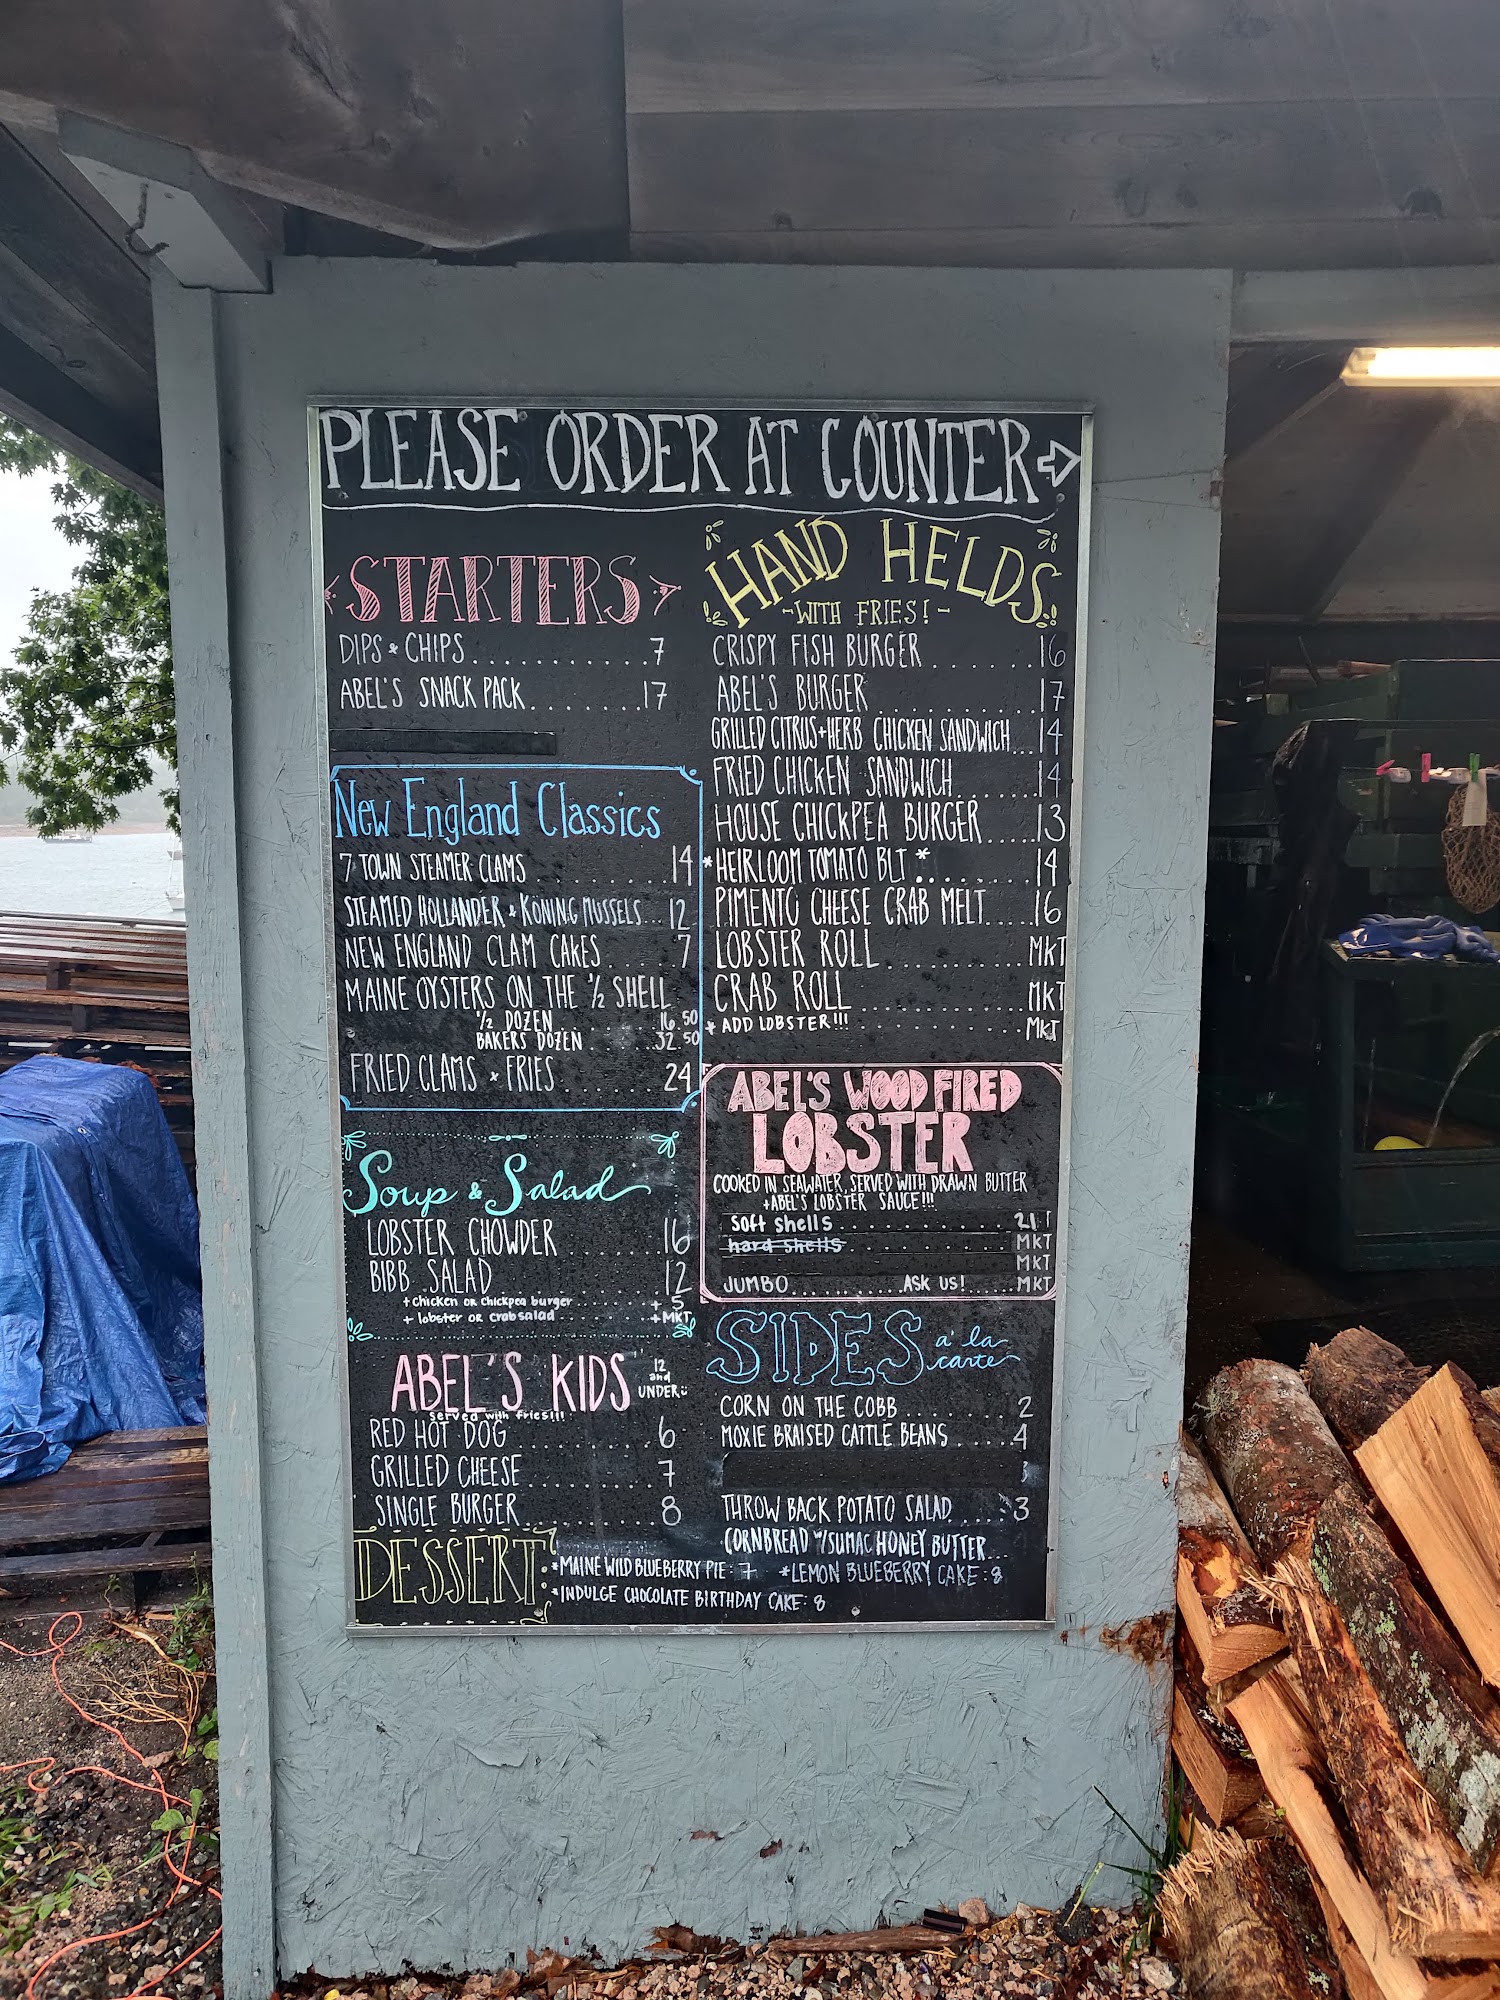 PLEASE ORDER AT COUNTER
STARTERS
DIPS & CHIPS...........7
ABEL'S SNACK PACK.......17
New England Classics
7 TOWN STEAMER CLAMS.........14
STEAMED HOLLANDER & KONING MUSSELS...12
NEW ENGLAND CLAM CAKES.....7
MAINE OYSTERS ON THE ½ SHELL
½ DOZEN......16.50
BAKERS DOZEN....32.50
FRIED CLAMS & FRIES......24
Soup & Salad
LOBSTER CHOWDER......16
BIBB SALAD..........12
+ chicken or chickpea burger........+ 5
+ lobster or crab salad.........+ MKT
ABEL'S KIDS 12 and UNDER
served with fries!!!
RED HOT DOG.........6
GRILLED CHEESE........7
SINGLE BURGER........8
HAND HELDS
-WITH FRIES!-
CRISPY FISH BURGER.......16
ABEL'S BURGER..........17
GRILLED CITRUS+HERB CHICKEN SANDWICH...14
FRIED CHICKEN SANDWICH......14
HOUSE CHICKPEA BURGER.....13
*HEIRLOOM TOMATO BLT*.......14
PIMENTO CHEESE CRAB MELT....16
LOBSTER ROLL..........MKT
CRAB ROLL...........MKT
* ADD LOBSTER!!!...........MKT
ABEL'S WOOD FIRED
LOBSTER
COOKED IN SEAWATER, SERVED WITH DRAWN BUTTER
+ABEL'S LOBSTER SAUCE!!!
Soft Shells............21
hard shells...........MKT
MKT
JUMBO..........ASK US!.....MKT
SIDES a' la carte
CORN ON THE COBB.......2
MOXIE BRAISED CATTLE BEANS.....4
THROW BACK POTATO SALAD.....3
CORNBREAD W/SUMAC HONEY BUTTER...
DESSERT
*MAINE WILD BLUEBERRY PIE: 7 *LEMON BLUEBERRY CAKE: 8
*INDULGE CHOCOLATE BIRTHDAY CAKE: 8